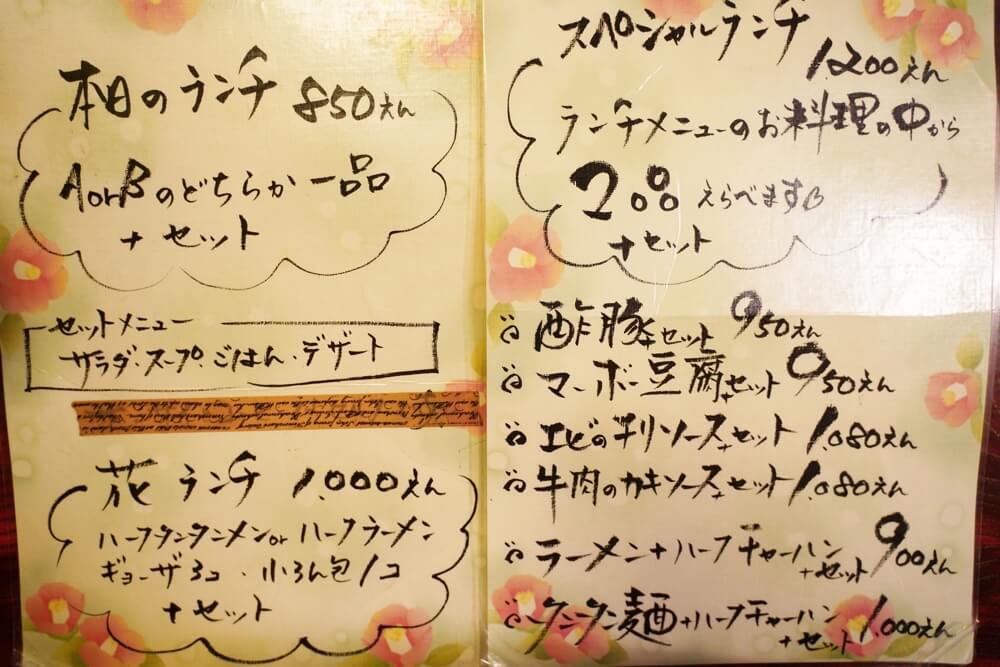 本日のランチ 850えん
AorBのどちらか一品
+セット
セットメニュー
サラダ・スープ・ごはん・デザート
花ランチ 1,000えん
ハーフタンタンメンorハーフラーメン
ギョーザ3コ・小ろん包1コ
+セット
スペシャルランチ
1200えん
ランチメニューのお料理の中から
2品えらべます
+セット
酢豚+セット 950えん
マーボー豆腐+セット 950えん
エビのチリソース+セット 1,080えん
牛肉のカキソース+セット 1,080えん
ラーメン+ハーフチャーハン+セット 900えん
タンタン麺+ハーフチャーハン+セット 1,000えん